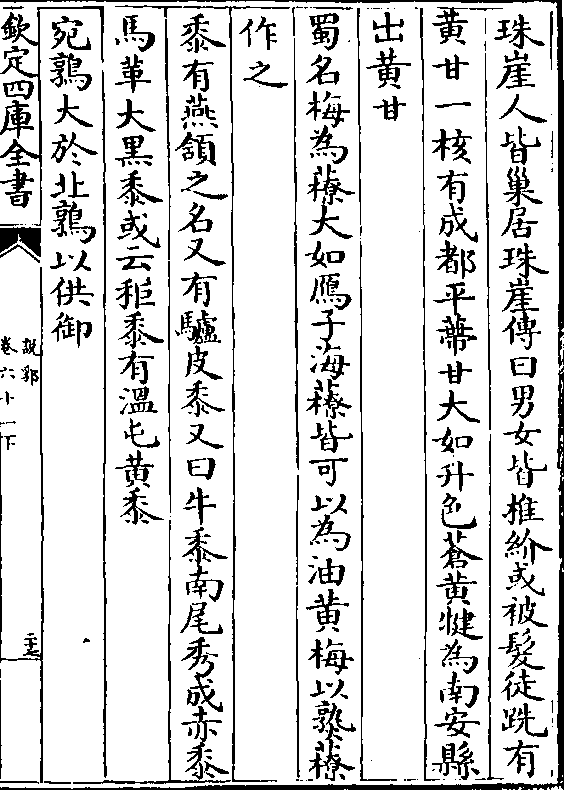 珠崖人皆巢居珠崖傳曰男女皆推紒或被髮徒跣有
黄甘一核有成都平蔕甘大如升色蒼黄犍為南安縣
出黄甘
蜀名梅為䕩大如鴈子海䕩皆可以為油黄梅以熟䕩
作之
黍有燕頷之名又有驢皮黍又曰牛黍南尾秀成赤黍
馬革大黑黍或云秬黍有溫屯黄黍
宛鶉大於北鶉以供御
欽定四庫全書
説郛
卷六十一下